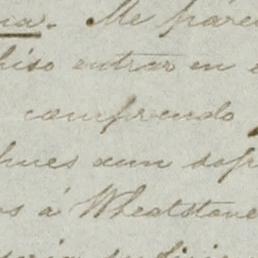 na. Me parec
hiso entrar en
comprendo
pues aun sup
os á Wheatstone